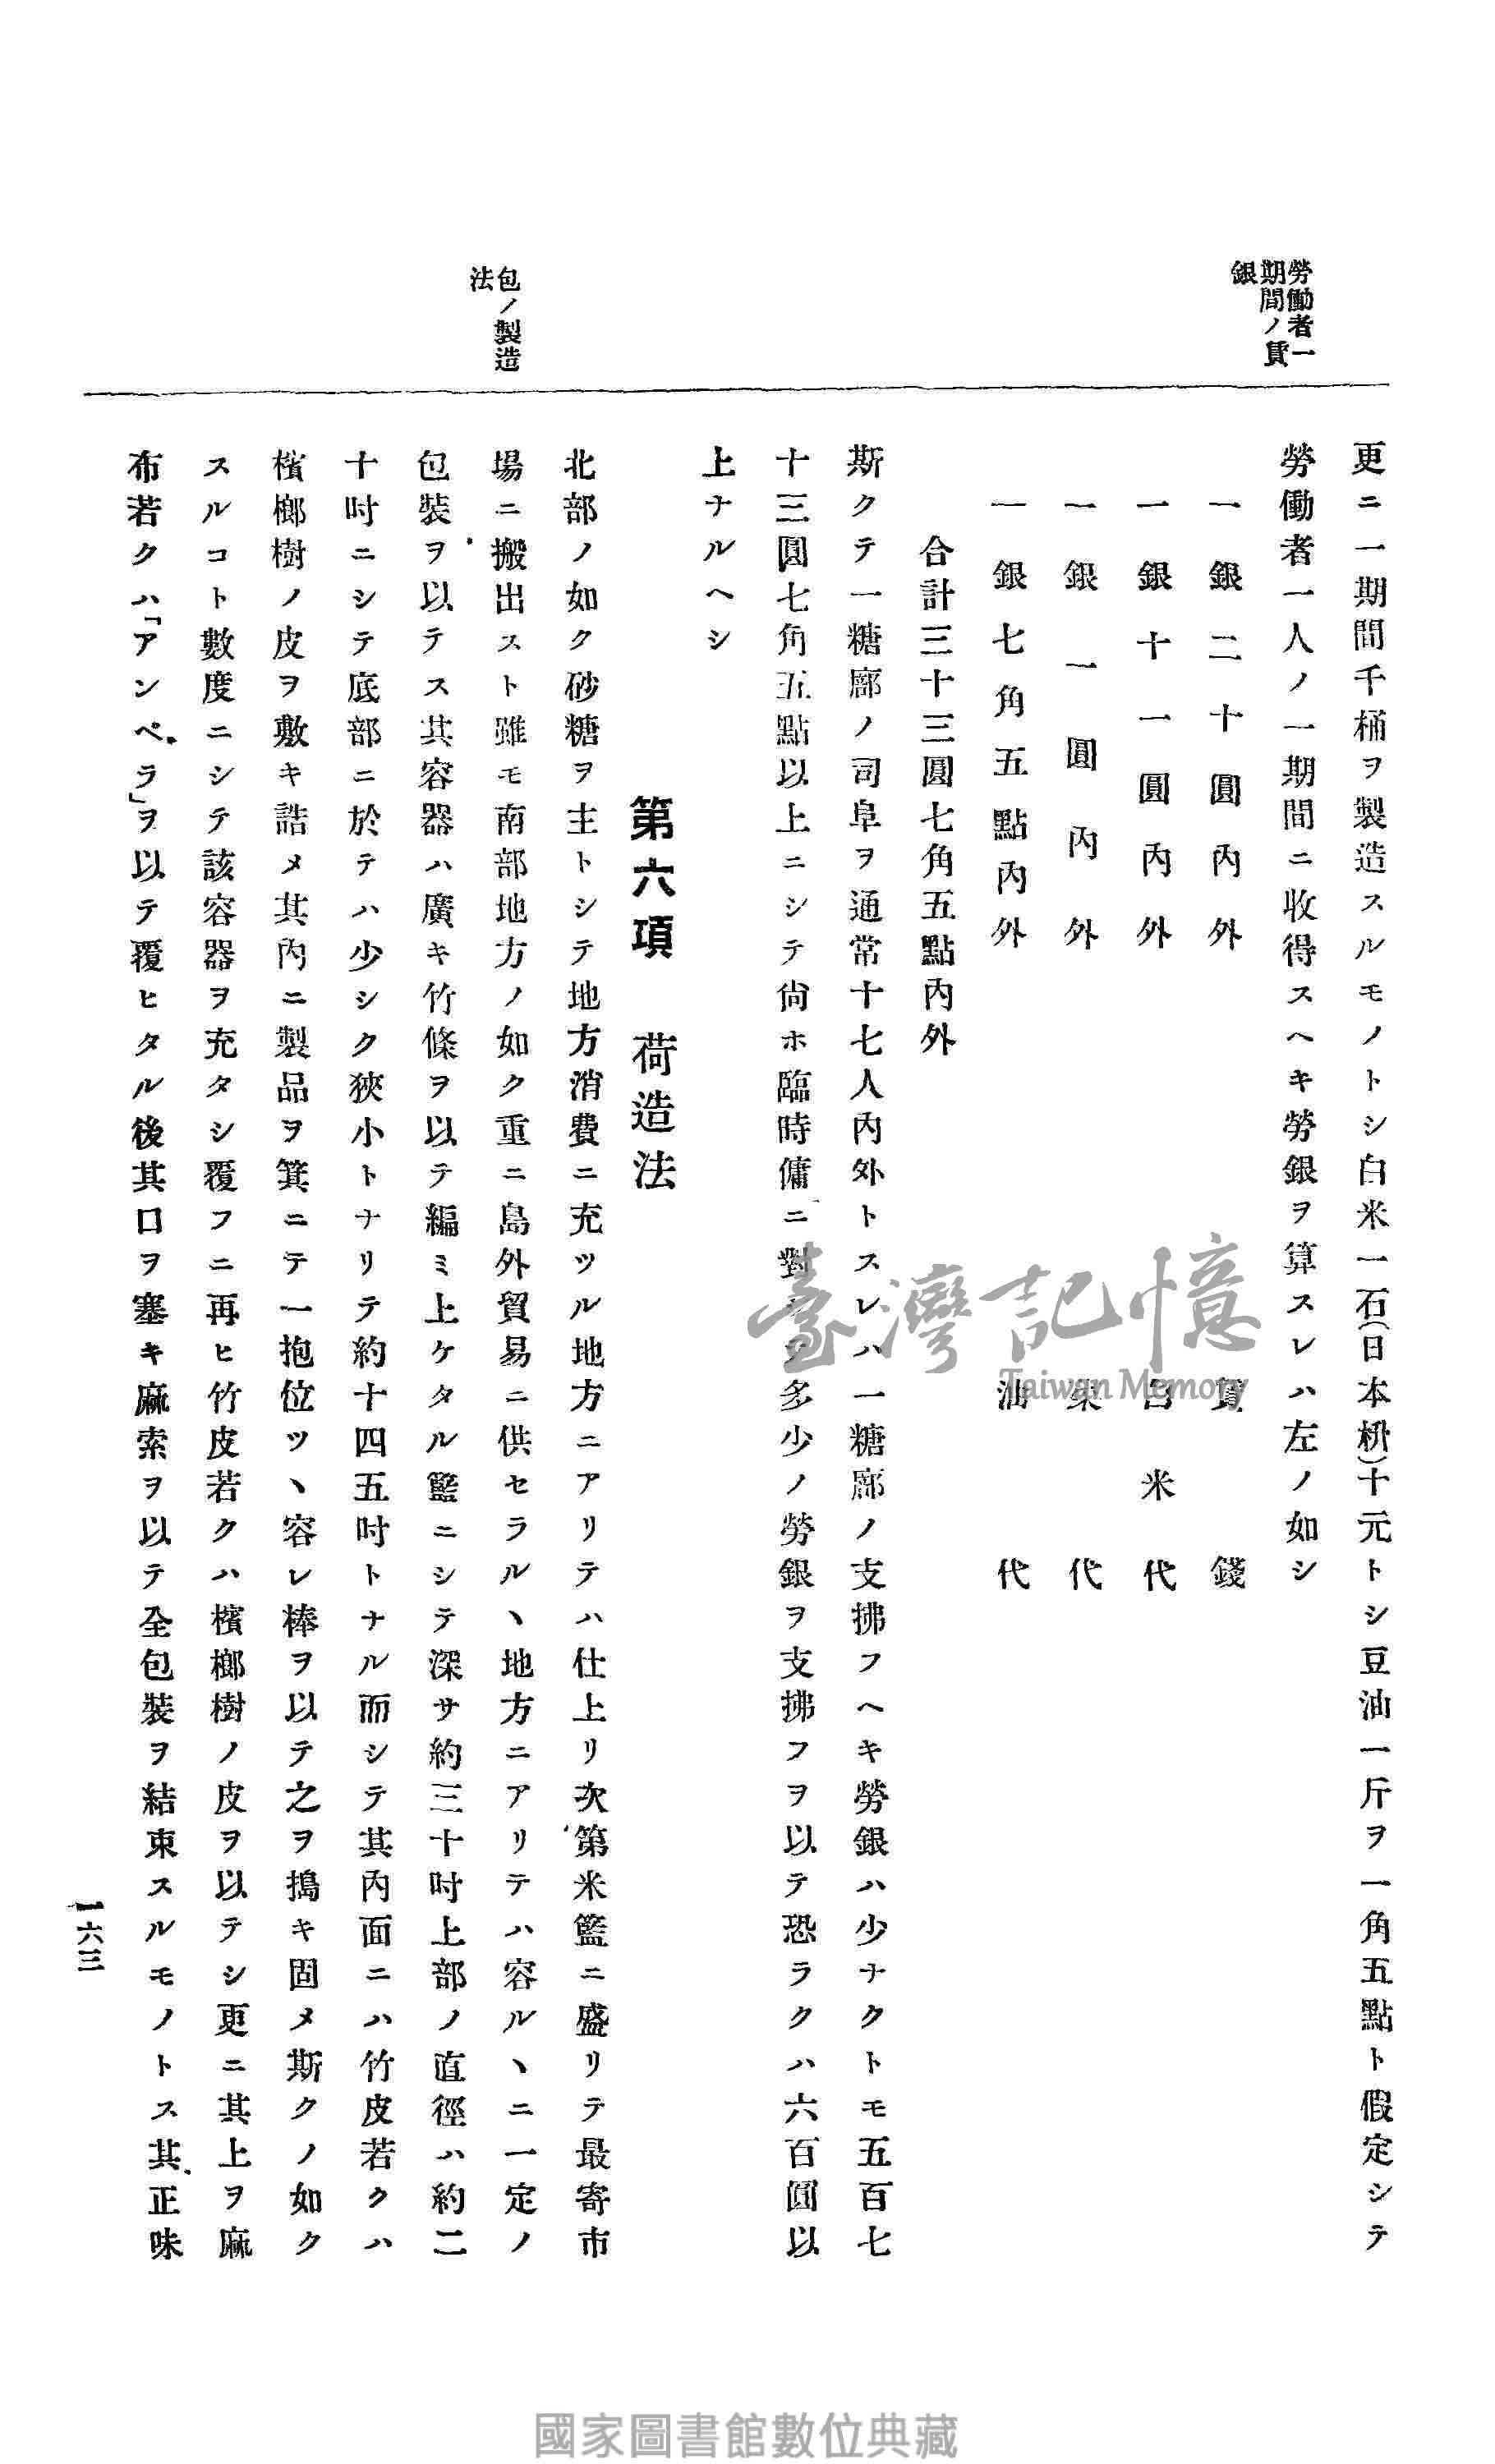 勞働者一
期間ノ賃
銀
更ニ一期間千桶ヲ製造スルモノトシ白米一石(日本枡)十元トシ豆油一斤ヲ一角五點ト假定シテ
勞働者一人ノ一期間ニ收得スヘキ勞銀ヲ算スレハ左ノ如シ
一銀二十圓內外 賃錢
一銀十一圓內外 白米代
一銀一圓內外 菜代
一銀七角五點內外 油代
合計三十三圓七角五點內外
斯クテ一糖廍ノ司阜ヲ通常十七人內外トスレハ一糖廍ノ支拂フヘキ勞銀ハ少ナクトモ五百七
十三圓七角五點以上ニシテ尙ホ臨時傭ニ對シテ多少ノ勞銀ヲ支拂フヲ以テ恐ラクハ六百圓以
上ナルヘシ
第六項 荷造法
包ノ製造
法
北部ノ如ク砂糖ヲ主トシテ地方消費ニ充ツル地方ニアリテハ仕上リ次第米籃ニ盛リテ最寄市
場ニ搬出スト雖モ南部地方ノ如ク重ニ島外貿易ニ供セラルヽ地方ニアリテハ容ルヽニ一定ノ
包裝ヲ以テス其容器ハ廣キ竹條ヲ以テ編ミ上ケタル籃ニシテ深サ約三十吋上部ノ直徑ハ約二
十吋ニシテ底部ニ於テハ少シク狹小トナリテ約十四五吋トナル而シテ其內面ニハ竹皮若クハ
檳榔樹ノ皮ヲ敷キ詰メ其內ニ製品ヲ箕ニテ一抱位ツヽ容レ棒ヲ以テ之ヲ搗キ固メ斯クノ如ク
スルコト數度ニシテ該容器ヲ充タシ覆フニ再ヒ竹皮若クハ檳榔樹ノ皮ヲ以テシ更ニ其上ヲ麻
布若クハ「アンペラ」ヲ以テ覆ヒタル後其口ヲ塞キ麻索ヲ以テ全包裝ヲ結束スルモノトス其正味
一六三
臺灣記憶
Taiwan Memory
國家圖書館數位典藏